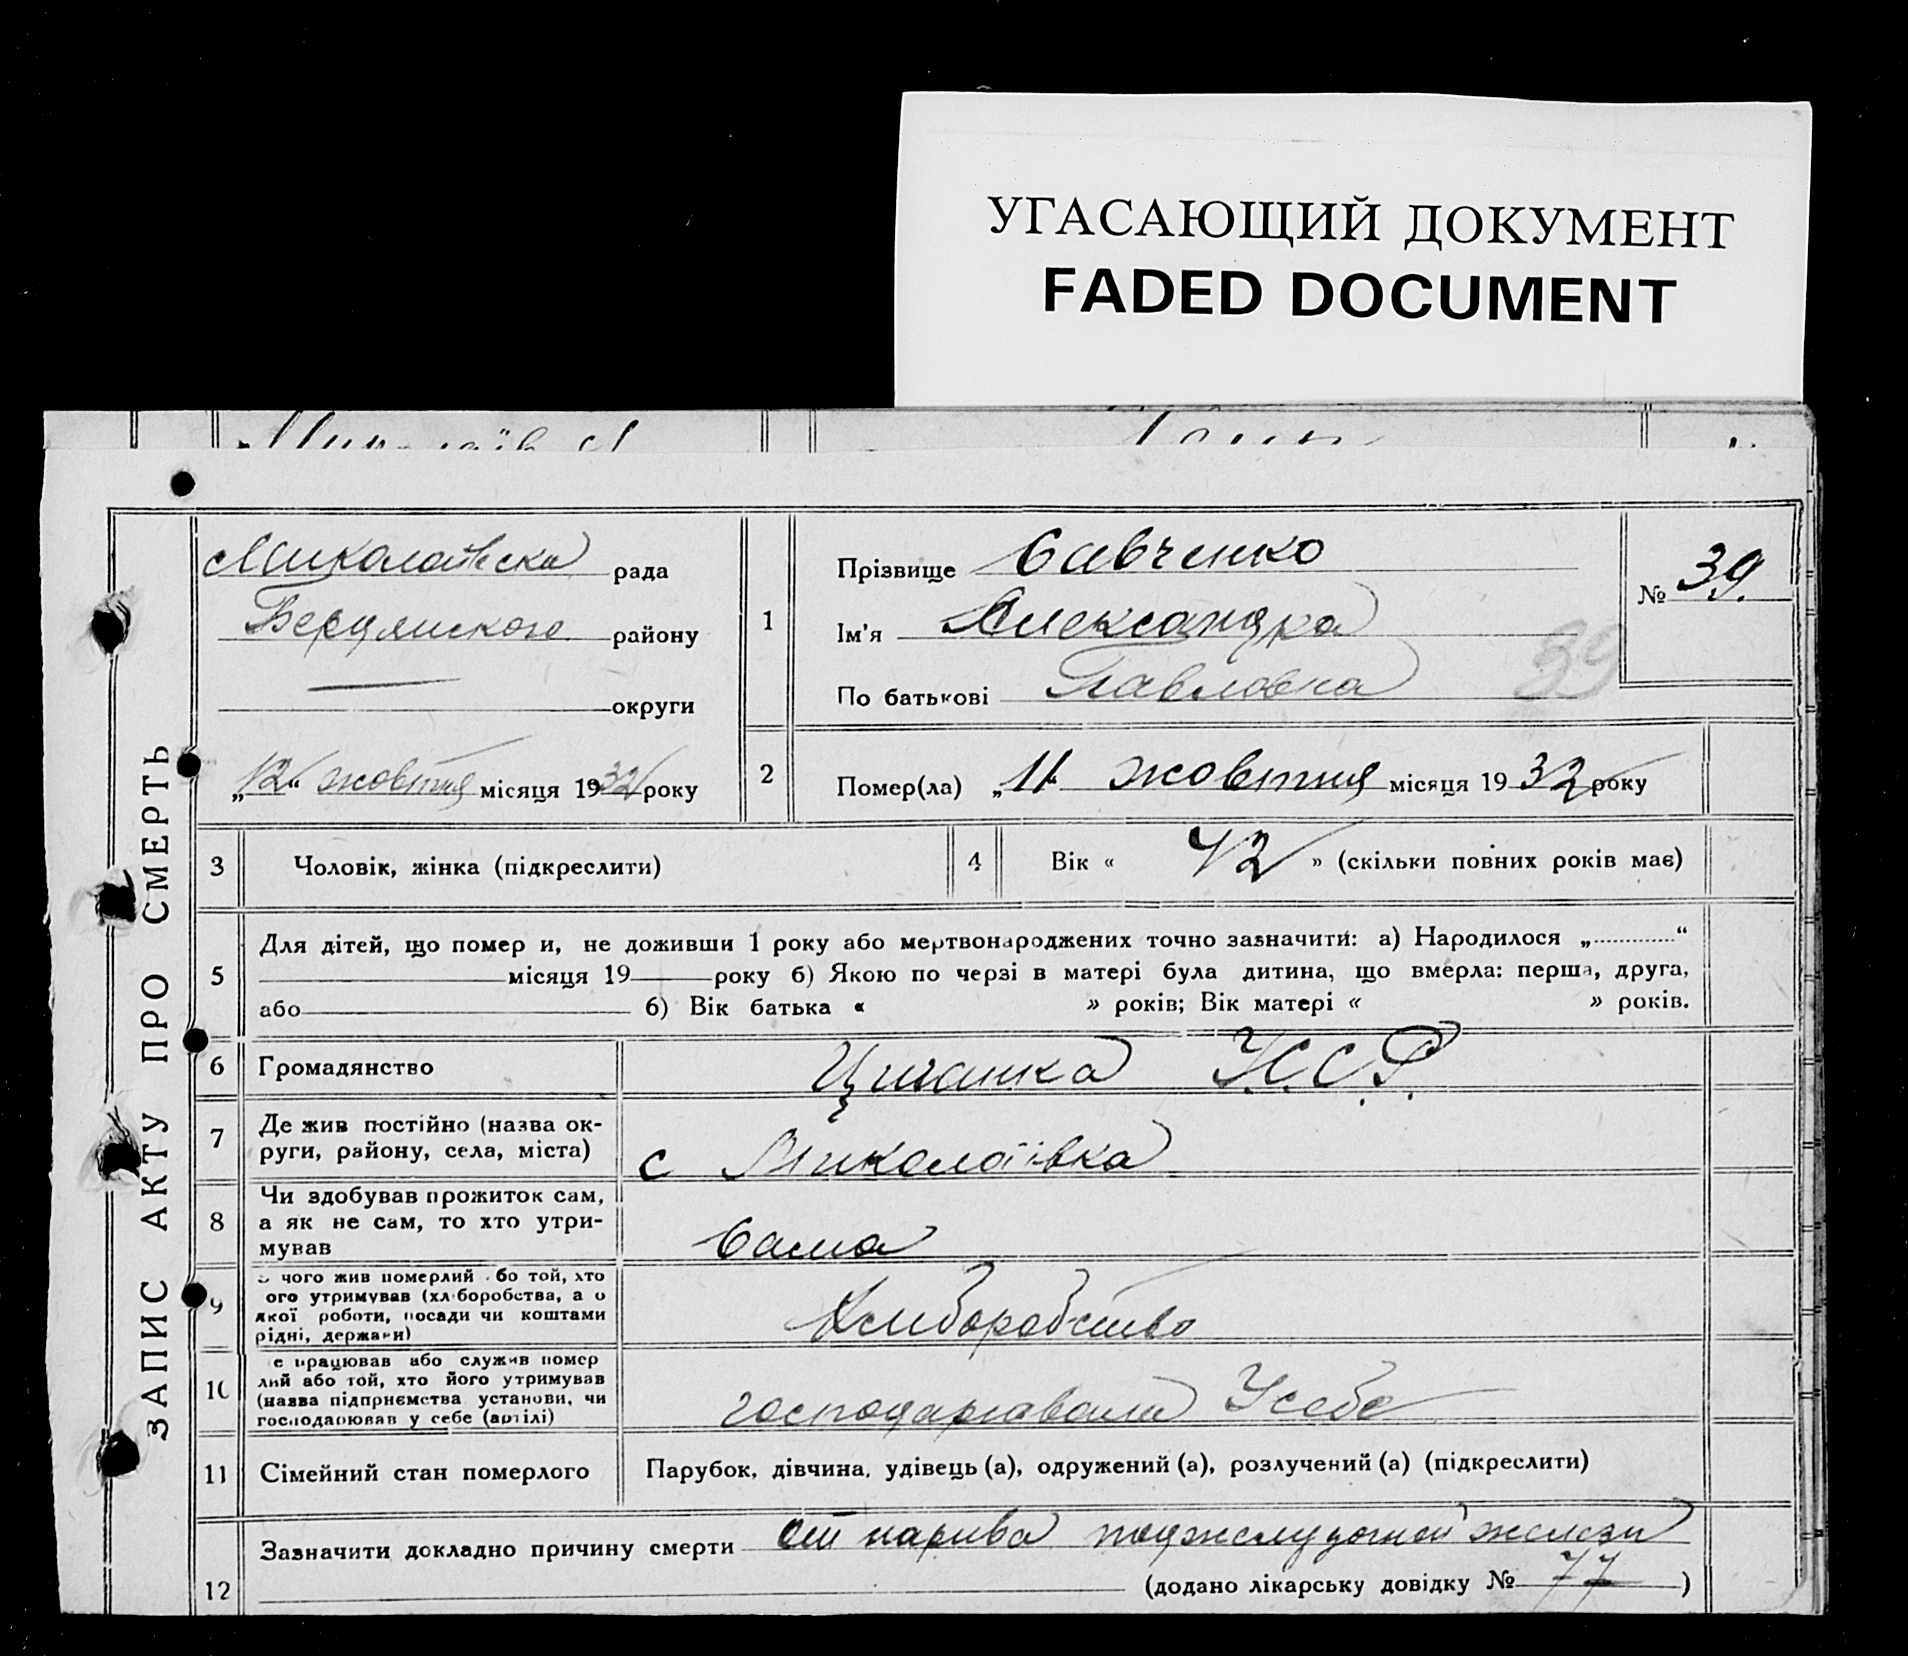 УГАСАЮЩИЙ ДОКУМЕНТ
FADED DOCUMENT
ЗАПИС АКТУ ПРО СМЕРТЬ
Миколаївска рада
Бердянского району
округи
„12“ жовтня місяця 1932 року
1
Прізвище Савченко
Ім'я Александра
По батькові Павловна
№ 39.
39
2
Помер(ла) „11“ жовтня місяця 1932 року
3 Чоловік, жінка (підкреслити)
4 Вік « 42 » (скільки повних років має)
5
Для дітей, що помер и, не доживши 1 року або мертвонароджених точно зазначити: а) Народилося „.............“
місяця 19 року б) Якою по черзі в матері була дитина, що вмерла: перша, друга,
або б) Вік батька « » років; Вік матері « » років.
6 Громадянство Циганка У.С.С.Р.
7
Де жив постійно (назва ок-
руги, району, села, міста) с Миколаївка
8
Чи здобував прожиток сам,
а як не сам, то хто утри-
мував Сама
9
чого жив померлий бо той, хто
ого утримував (хл боробства, а о
якої роботи, посади чи коштами
рідні, держави) Хліборобство
10
е працював або служив помер
лий або той, хто його утримував
(назва підприємства установи, чи
господарював у себе (артілі) господарювали У себе
11 Сімейний стан померлого Парубок, дівчина, удівець (а), одружений (а), розлучений (а) (підкреслити)
12
Зазначити докладно причину смерти от нарива поджелудочной железы
(додано лікарську довідку № 77 )